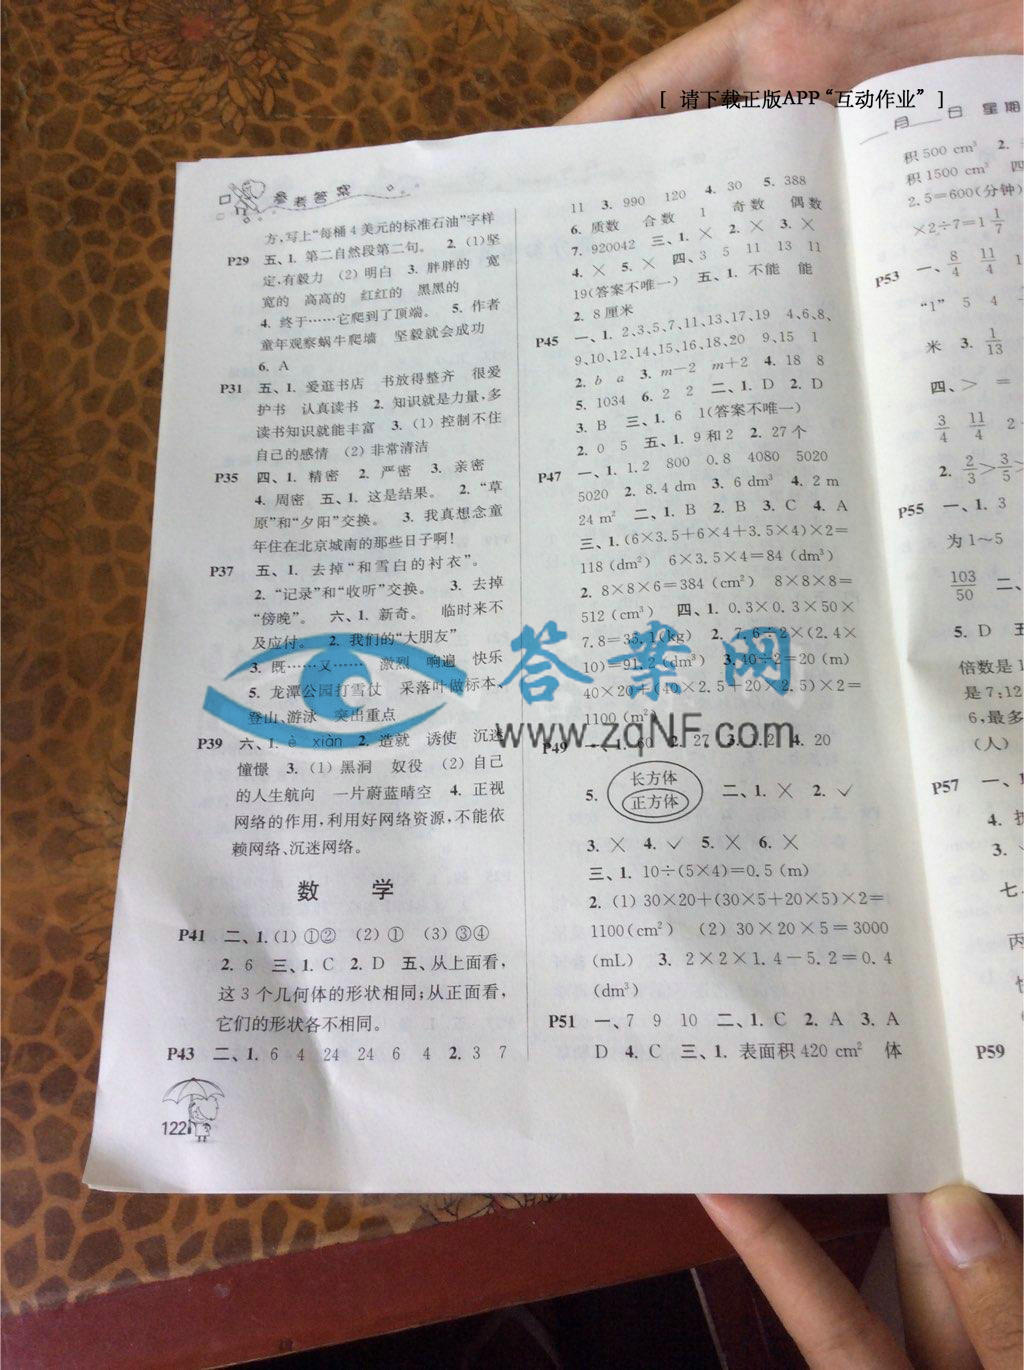 [ 请下载正版APP“互动作业” ]
参考答案
方,写上“每桶4美元的标准石油”字样
P29 五、1. 第二自然段第二句。 2. (1)坚
定,有毅力 (2) 明白 3. 胖胖的 宽
宽的 高高的 红红的 黑黑的
4. 终于……它爬到了顶端。 5. 作者
童年观察蜗牛爬墙 坚毅就会成功
6. A
P31 五、1. 爱逛书店 书放得整齐 很爱
护书 认真读书 2. 知识就是力量,多
读书知识就能丰富 3. (1) 控制不住
自己的感情 (2) 非常清洁
P35 四、1. 精密 2. 严密 3. 亲密
4. 周密 五、1. 这是结果。 2. “草
原”和“夕阳”交换。 3. 我真想念童
年住在北京城南的那些日子啊!
P37 五、1. 去掉“和雪白的衬衣”。
2. “记录”和“收听”交换。 3. 去掉
“傍晚”。 六、1. 新奇。 临时来不
及应付。 2. 我们的“大朋友”
3. 既……又…… 激烈 响遍 快乐
5. 龙潭公园打雪仗 采落叶做标本、
登山、游泳 突出重点
P39 六、1. è xiàn 2. 造就 诱使 沉迷
憧憬 3. (1) 黑洞 奴役 (2) 自己
的人生航向 一片蔚蓝晴空 4. 正视
网络的作用,利用好网络资源,不能依
赖网络、沉迷网络。
数 学
P41 二、1. (1) ①② (2) ① (3) ③④
2. 6 三、1. C 2. D 五、从上面看,
这3个几何体的形状相同;从正面看,
它们的形状各不相同。
P43 二、1. 6 4 24 24 6 4 2. 3 7
122
11 3. 990 120 4. 30 5. 388
6. 质数 合数 1 奇数 偶数
7. 920042 三、1. × 2. × 3. ×
4. × 5. × 四、3 5 11 13 11
19(答案不唯一) 五、1. 不能 能
2. 8厘米
P45 一、1. 2、3、5、7、11、13、17、19 4、6、8、
9、10、12、14、15、16、18、20 9、15 1
2. b a 3. m−2 m+2 4. 18 8
5. 1034 6. 2 2 二、1. D 2. D
3. B 三、1. 6 1(答案不唯一)
2. 0 5 五、1. 9和2 2. 27个
P47 一、1. 1.2 800 0.8 4080 5020
5020 2. 8.4 dm 3. 6 dm³ 4. 2 m
24 m² 二、1. B 2. B 3. C 4. A
三、1. (6×3.5+6×4+3.5×4)×2=
118 (dm²) 6×3.5×4=84 (dm³)
2. 8×8×6=384 (cm²) 8×8×8=
512 (cm³) 四、1. 0.3×0.3×50×
7.8=35.1(kg) 2. 7.6÷2×(2.4×
10)=91.2(dm³) 3. 40÷2=20 (m)
40×20+(40×2.5+20×2.5)×2=
1100 (m²)
P49 一、1. 60 2. 27 3. 2 4. 20
5. 长方体 正方体 二、1. × 2. ✓
3. × 4. ✓ 5. × 6. ×
三、1. 10÷(5×4)=0.5 (m)
2. (1) 30×20+(30×5+20×5)×2=
1100(cm²) (2) 30×20×5=3000
(mL) 3. 2×2×1.4−5.2=0.4
(dm³)
P51 一、7 9 10 二、1. C 2. A 3. A
D 4. C 三、1. 表面积420 cm² 体
答案网
www.zqNF.com
月 日 星期
积500 cm³ 2.
积1500 cm³ 四
2.5=600(分钟)
×2÷7=1 1/7
P53 一、8/4 11/4 1
“1” 5 4
米 3. 1/13
四、> =
3/4 11/4 2
2. 2/3>3/5>
P55 一、1. 3
为1~5
103/50 二、
5. D 五
倍数是1
是7;12
6,最多
(人)
P57 一、1
4.
3.
七、
丙
P59